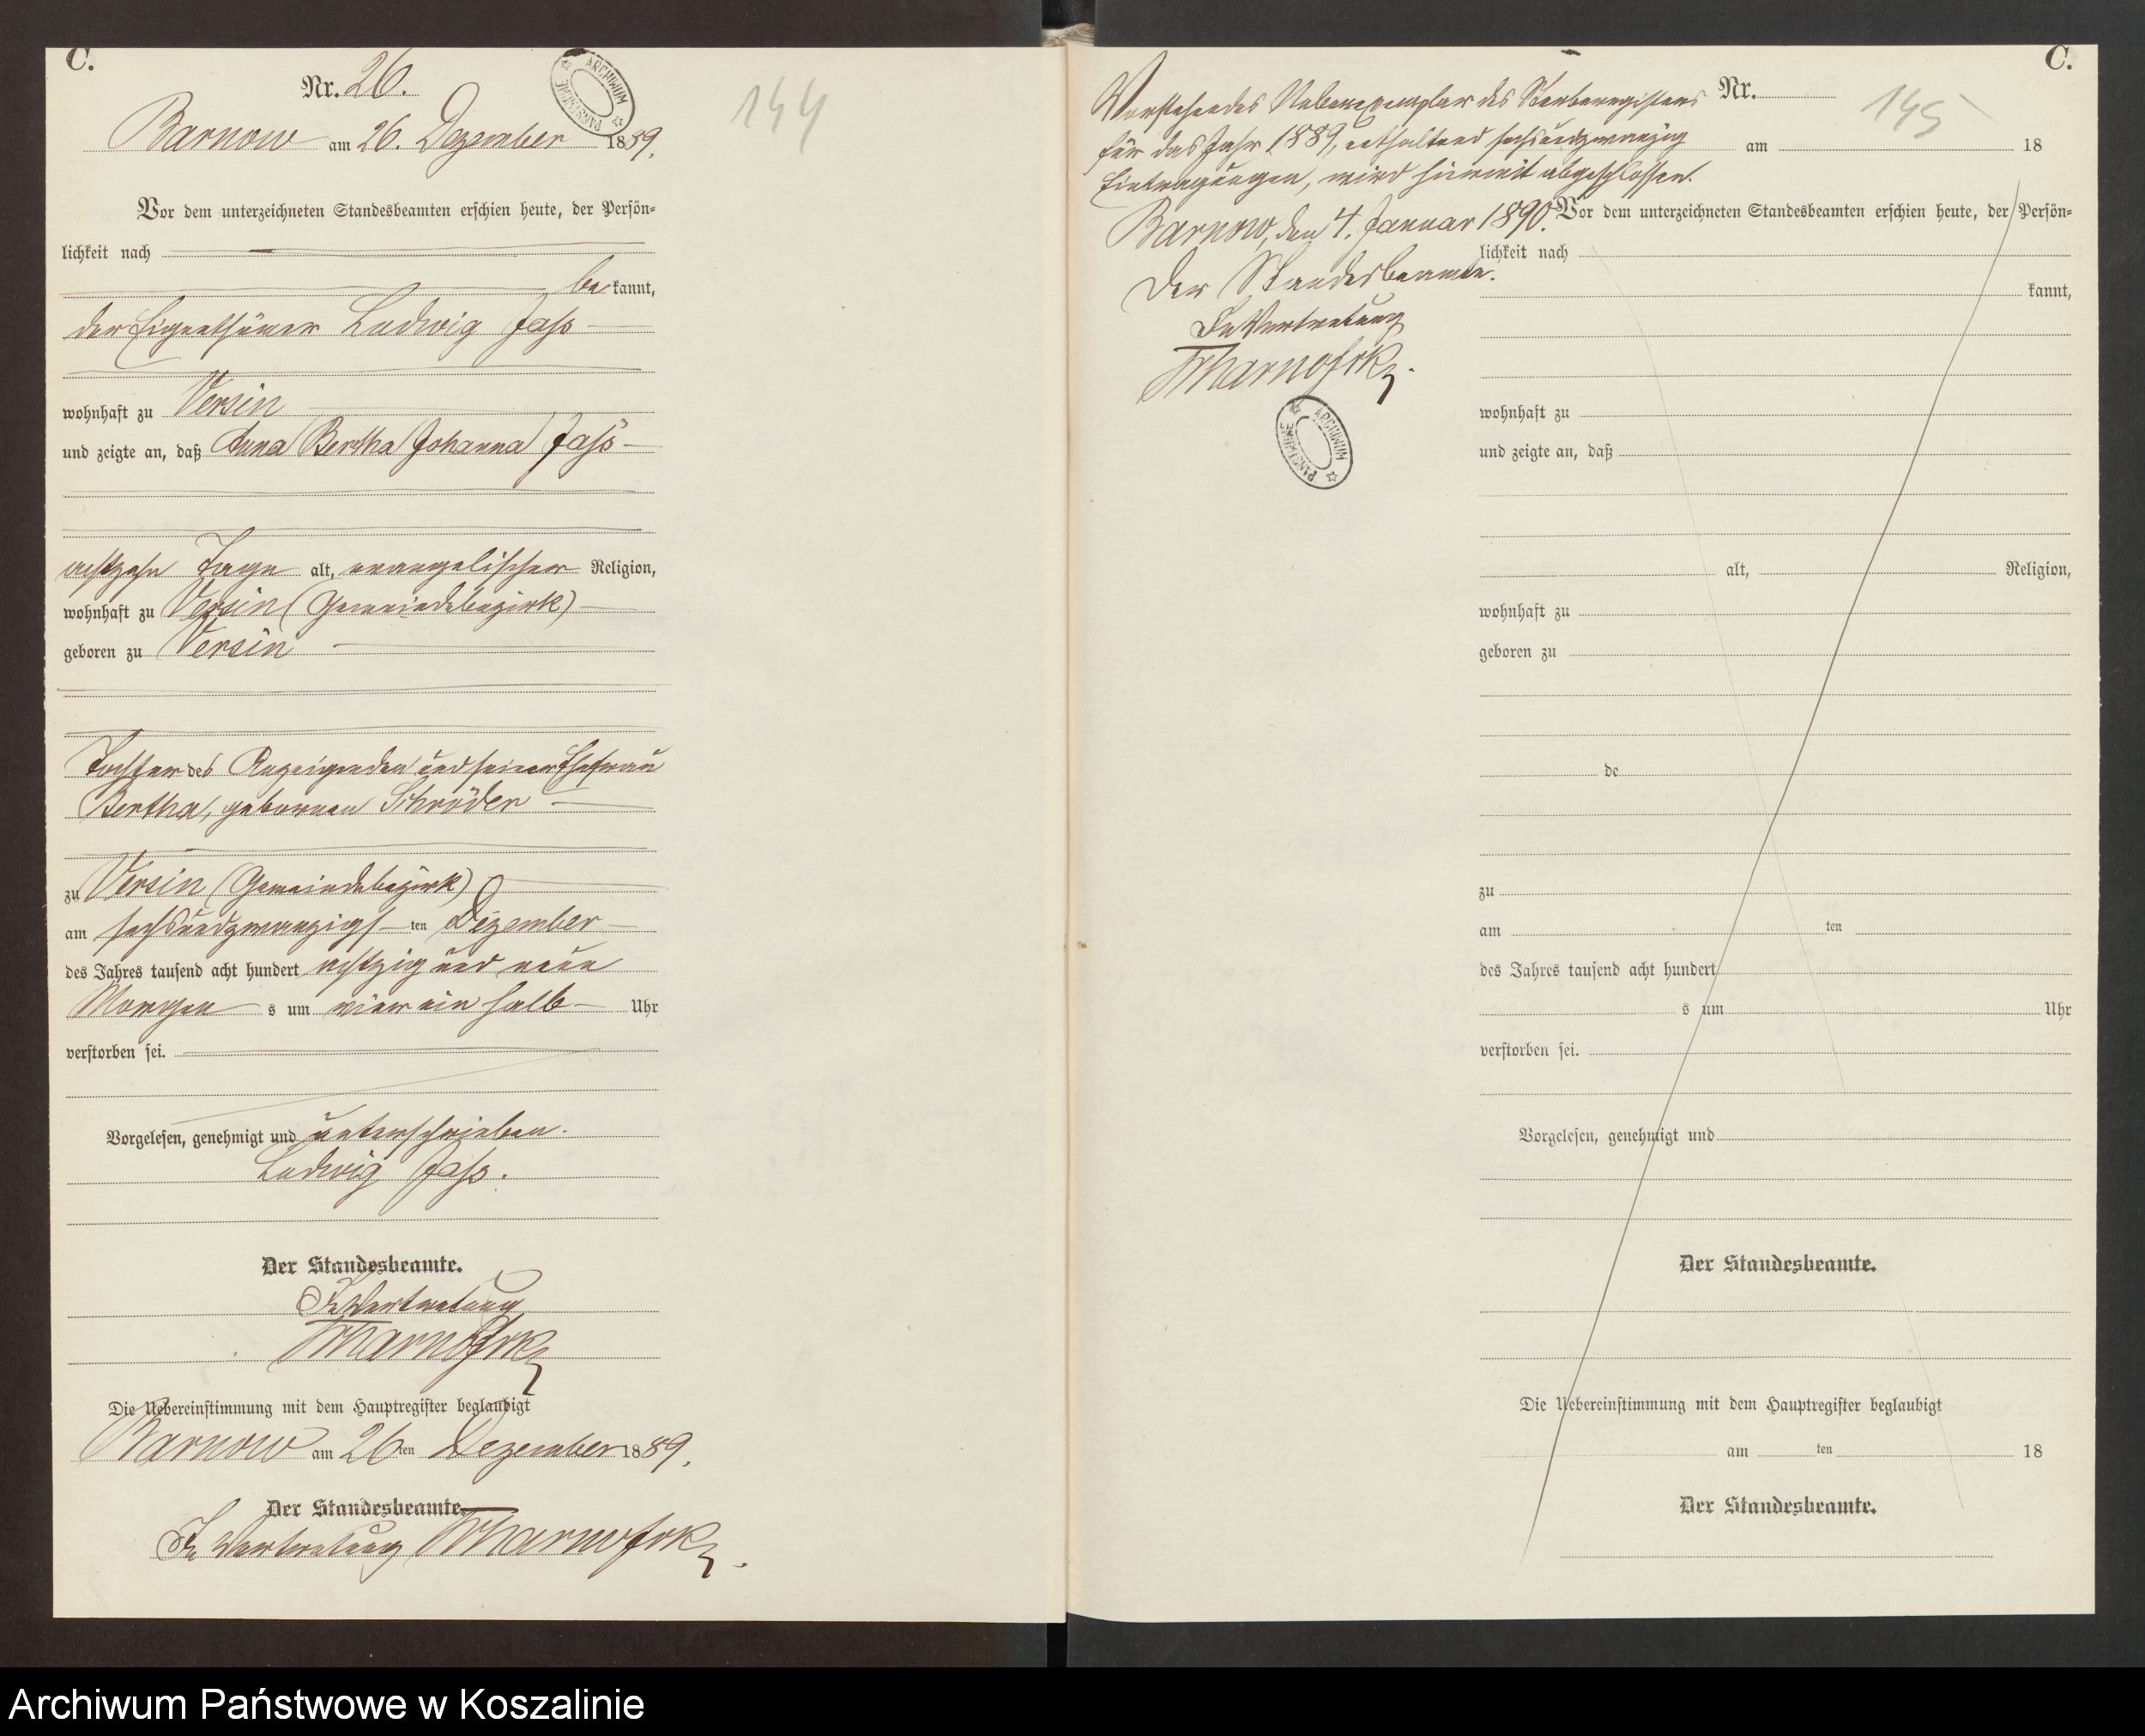 C.
Nr. 26.
144
ARCHIWUM PAŃSTWOWE
Barnow am 26. Dezember 1889.
Vor dem unterzeichneten Standesbeamten erschien heute, der Persön=
lichkeit nach
be kannt,
der Eigenthümer Ludwig Jaß
wohnhaft zu Versin
und zeigte an, daß Anna Bertha Johanna Jaß
achtzehn Tage alt, evangelischer Religion,
wohnhaft zu Versin (Gemeindebezirk)
geboren zu Versin
Tochter des Anzeigenden und seiner Ehefrau
Bertha, gebornen Schröder
zu Versin (Gemeindebezirk)
am sechsundzwanzigsten Dezember
des Jahres tausend acht hundert achtzig und neun
Morgens um vier ein halb Uhr
verstorben sei.
Vorgelesen, genehmigt und unterschrieben.
Ludwig Jaß.
Der Standesbeamte.
In Vertretung
Die Uebereinstimmung mit dem Hauptregister beglaubigt
Barnow am 26ten Dezember 1889.
Der Standesbeamte.
In Vertretung
C.
145
Vorstehendes Nebenexemplar des Sterberegisters
für das Jahr 1889, enthaltend sechsundzwanzig
Eintragungen, wird hiermit abgeschlossen.
Barnow, den 4. Januar 1890.
Der Standesbeamte.
In Vertretung
ARCHIWUM PAŃSTWOWE
Nr.
am 18
Vor dem unterzeichneten Standesbeamten erschien heute, der Persön=
lichkeit nach
kannt,
wohnhaft zu
und zeigte an, daß
alt, Religion,
wohnhaft zu
geboren zu
de
zu
am ten
des Jahres tausend acht hundert
s um Uhr
verstorben sei.
Vorgelesen, genehmigt und
Der Standesbeamte.
Die Uebereinstimmung mit dem Hauptregister beglaubigt
am ten 18
Der Standesbeamte.
Archiwum Państwowe w Koszalinie